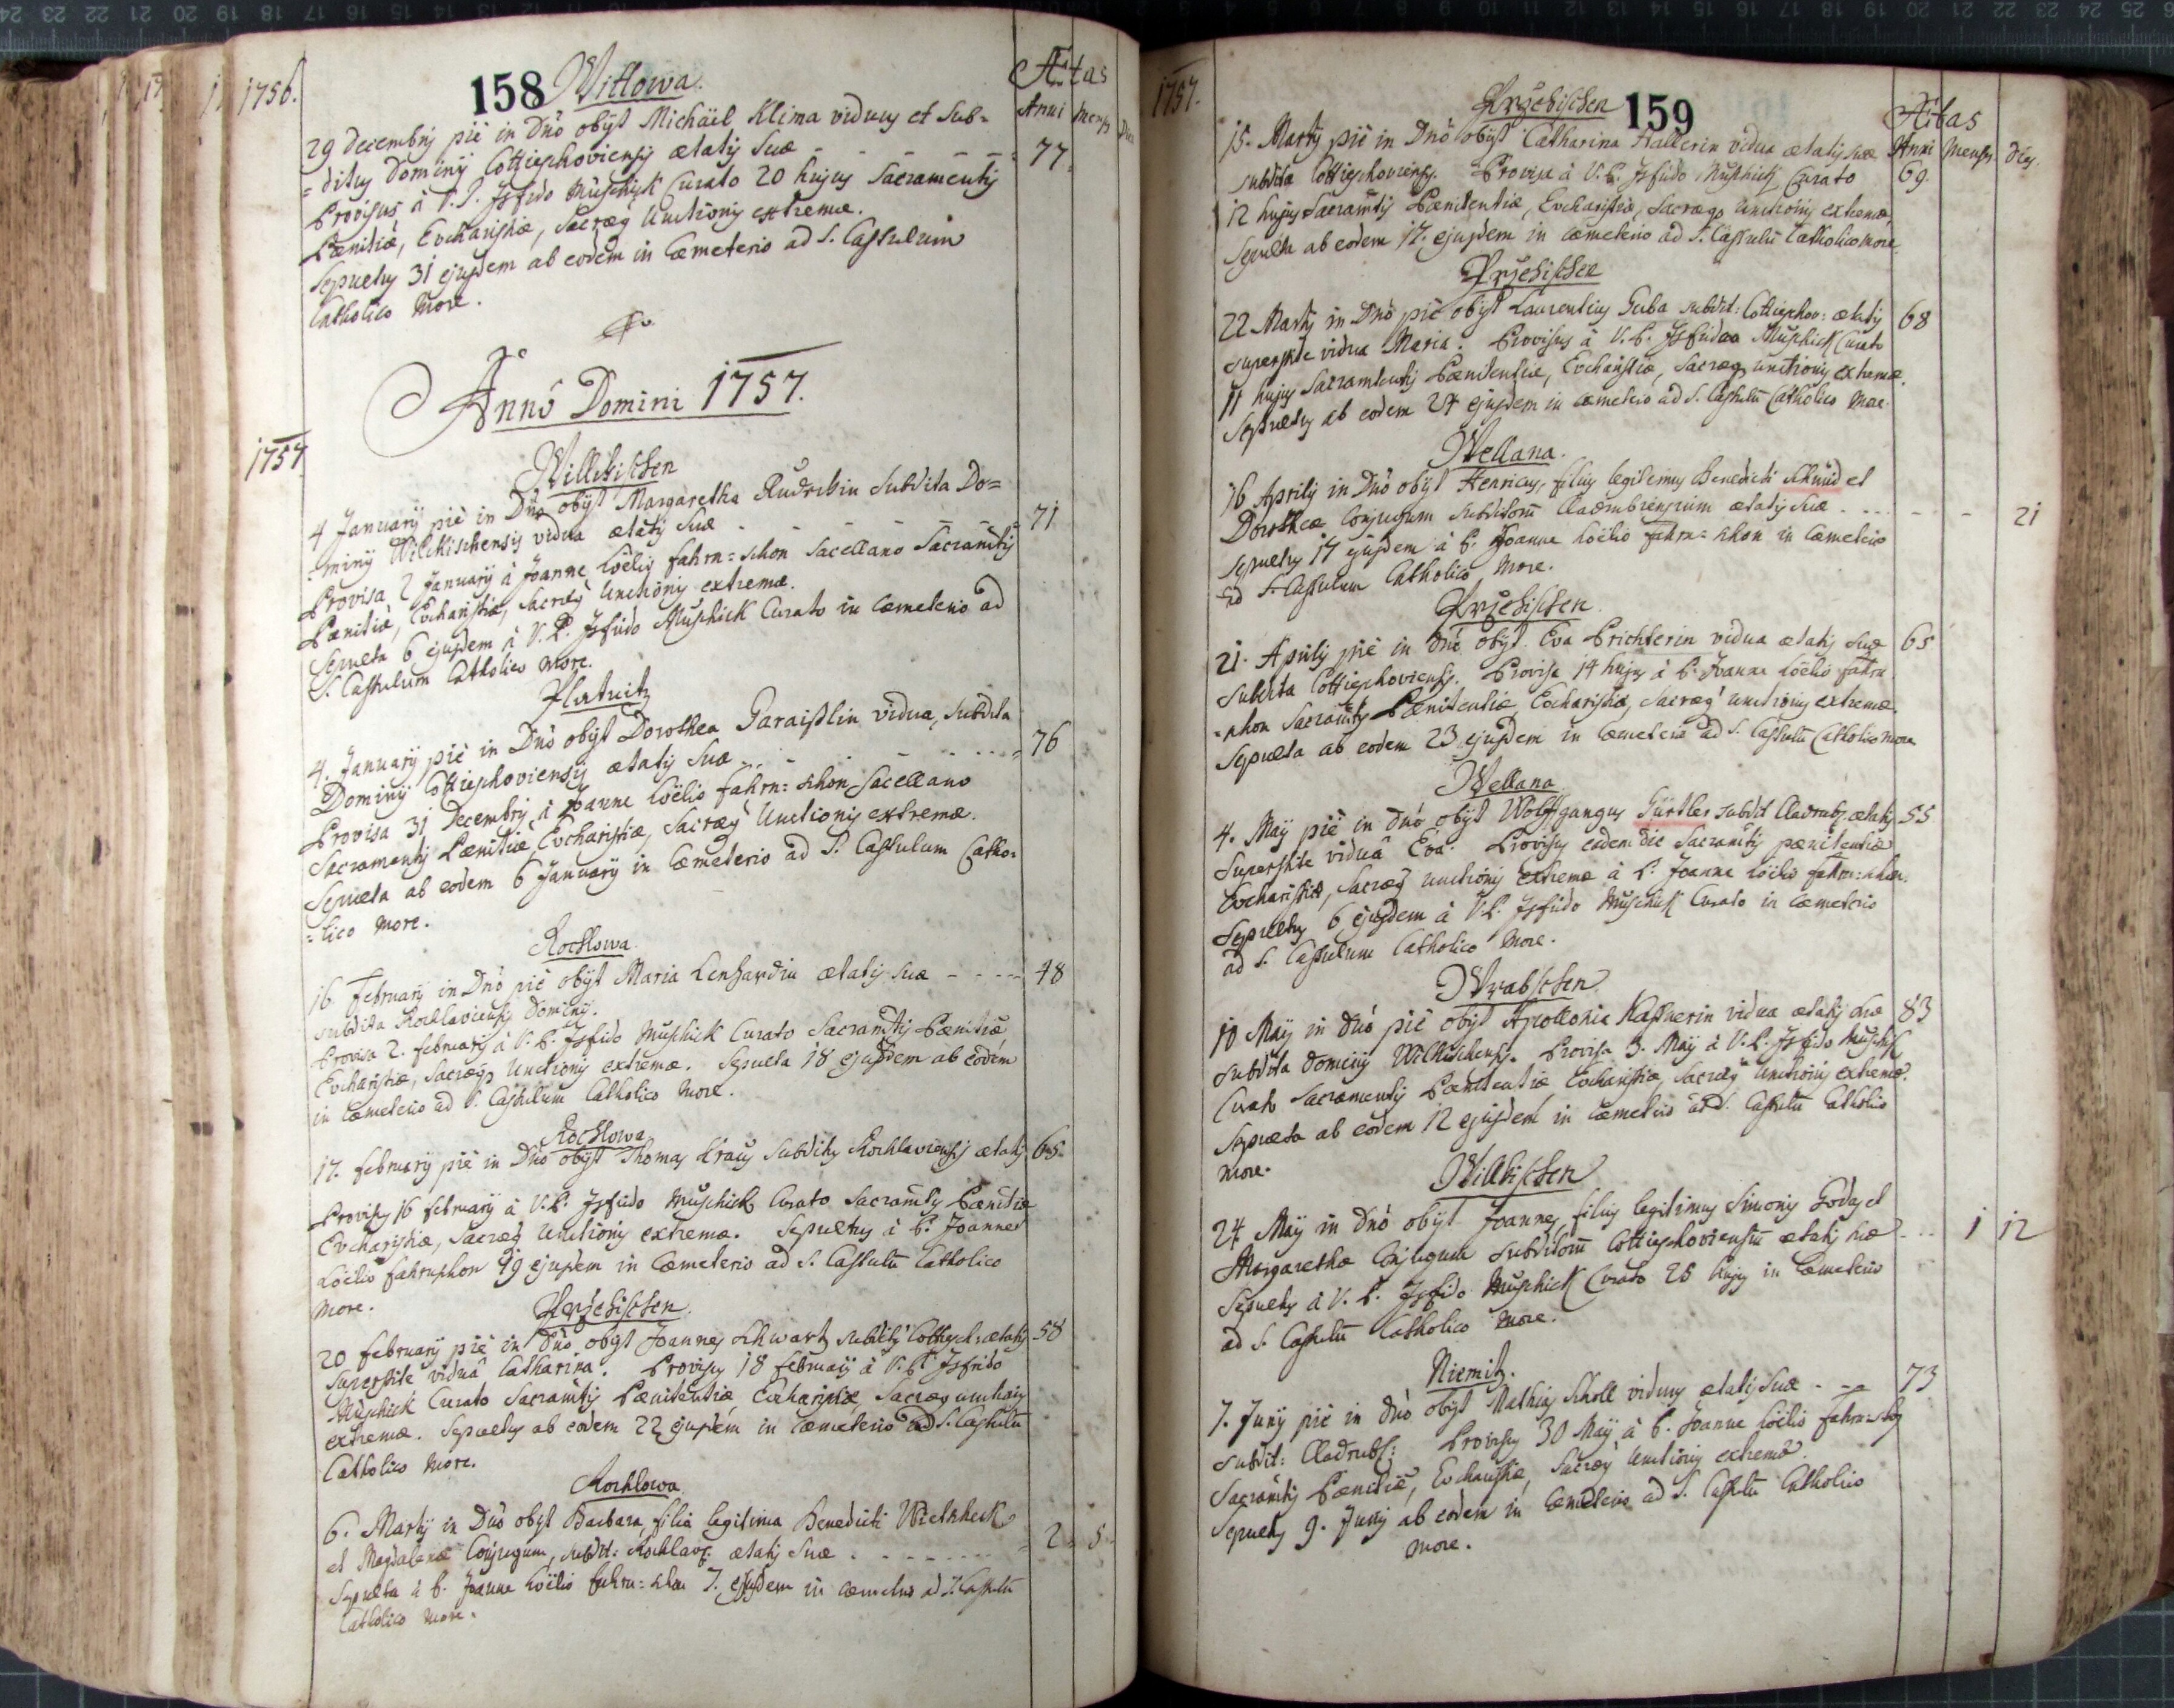 1756.
158 Witlowa. Ætas
Anni Mens. Dies
29 Decembris pie in Dno obijt Michäel Klima viduus et Sub=
=ditus Dominij Cottieschoviensis ætatis suæ - - - - - 77.
Provisus à V. P. Isfrido Muschick Curato 20 hujus Sacramentis
Pænitiæ, Eucharistiæ, Sacræq Unctionis extremæ.
Sepultus 31 ejusdem ab eodem in Cæmeterio ad S. Cassulum
Catholico More.
Annô Domini 1757.
1757
Willkischen
4 Januarij piè in Dno obijt Margaretha Subdita Do=
=minij Wilckischensis vidua ætatis suæ - - - - - 71
Provisa 2 Januarij à Joanne Loëlio fahrn=schon Sacellano Sacramtis
Pænitiæ, Eucharistiæ, Sacræq Unctionis extremæ.
Sepulta 6 ejusdem à V. P. Isfrido Muschick Curato in Cæmeterio ad
S. Cassulum Catholico More.
Hlatnitz
4. Januarij piè in Dno obijt Dorothea Garaißlin vidua, subdita
Dominij Cottieschoviensis ætatis suæ - - - - 76
Provisa 31 Decembris à Joanne Loëlio fahrn=schon Sacellano
Sacramentis Pænitiæ Eucharistiæ, Sacræq Unctionis extremæ.
Sepulta ab eodem 6 Januarij in Cæmeterio ad S. Cassulum Catho=
=lico More.
Rochlowa.
16 Februarij in Dno piè obijt Maria Lenhardin ætatis suæ - - - - 48
subdita Rochlaviensis Dominij.
Provisa 2. februarij à V. P. Isfrido Muschick Curato Sacramtis Pænitiæ
Eucharistiæ, Sacræq Unctionis extremæ. Sepulta 18 ejusdem ab eodem
in Cæmeterio ad S. Cassulum Catholico More.
Rochlowa
17. februarij piè in Dno obijt Thomas Kraus subditus Rochlaviensis ætatis 65.
Provisus 16 februarij à V. P. Isfrido Muschick Curato Sacramtis Pænitiæ
Eucharistiæ, Sacræq Unctionis extremæ. Sepultus à P. Joanne
Loëlio fahrnschon 19 ejusdem in Cæmeterio ad S. Cassulu Catholico
More.
Przehischen.
20 februarij piè in Dno obijt Joannes Schwartz subditus Cottiesch: ætatis 58
superstite viduâ Catharina. Provisus 18 februarij à V. P. Isfrido
Muschick Curato Sacramtis Pænitentiæ Eucharistiæ, Sacræq unctionis
extremæ. Sepultus ab eodem 22 ejusdem in Cæmeterio ad S. Cassulu
Catholico More.
Rochlowa
6. Martij in Dno obijt Barbara, filia legitima Benedicti
et Magdalenæ Conjugum, subdit: Rochlav: ætatis suæ - - - - 2 5
Sepulta à P. Joanne Loëlio fahrn=schon 7. ejusdem in Cæmeterio ad S. Cassulu
Catholico More.
1757.
Przehischen 159 Ætas
Anni Mens. dies.
15. Martij piè in Dno obijt Catharina Hallerin vidua ætatis suæ 69.
subdita Cottieschoviensis. Provisa à V. P. Isfrido Muschick Curato
12 hujus Sacramtis Pænitentiæ, Eucharistiæ, Sacræq Unctionis extremæ,
Sepulta ab eodem 17. ejusdem in Cæmeterio ad S. Cassulu Catholico More.
Przehischen
22 Martij in Dno piè obijt Laurentius Guba subdit: Cottieschov: ætatis 68
superstite vidua Maria. Provisus à V. P. Isfrido Muschick Curato
11 hujus Sacramentis Pænitentiæ, Eucharistiæ, Sacræq unctionis extremæ.
Sepultus ab eodem 24 ejusdem in Cæmeterio ad S. Cassulu Catholico More.
Wellana.
16 Aprilis in Dno obijt Henricus, filius legitimus Benedicti Schmid et
Dorotheæ Conjugum subditom Cladrubiensium ætatis suæ - - - - - 21
Sepultus 17 ejusdem à P. Joanne Loëlio fahrn=schon in Cæmeterio
ad S. Cassulum Catholico More.
Przehischen.
21. Aprilis piè in Dno obijt Eva Prichterin vidua ætatis suæ 65
subdita Cottieschoviensis. Provisa 14 hujus à P. Joanne Loëlio fahrn
=schon Sacramtis Pænitentiæ, Eucharistiæ, Sacræq unctionis extremæ.
Sepulta ab eodem 23 ejusdem in Cæmeterio ad S. Cassulu Catholico More
Wellana
4. Maij piè in Dno obijt Wolffgangus Gürtler subdit Cladrubs. ætatis 55
superstite viduâ Eva. Provisus eadem die Sacramtis pænitentiæ
Eucharistiæ, Sacræq unctionis extremæ à P. Joanne Loëlio fahrn=schon.
Sepultus 6 ejusdem à V. P. Isfrido Muschick Curato in Cæmeterio
ad S. Cassulum Catholico More.
Wrabschen
10 Maij in Dno piè obijt Apollonia Kassnerin vidua ætatis suæ 83
subdita Dominij Willkischens. Provisa 3. Maij à V. P. Isfrido Muschick
Curato Sacramentis Pænitentiæ Eucharistiæ, Sacræq Unctionis extremæ.
Sepulta ab eodem 12 ejusdem in Cæmeterio ad S. Cassulu Catholico
More.
Willkischen
24 Maij in Dno obijt Joannes, filius legitimus Simonis Godas et
Margarethæ Conjugum subditom Cottieschoviensiu ætatis suæ - - - 1 12
Sepultus à V. P. Isfrido Muschick Curato 25 hujus in Cæmeterio
ad S. Cassulu Catholico More.
Niemitz.
7. Junij piè in Dno obijt Mathias Scholl viduus ætatis suæ - - - 73
subdit: Cladrubs: Provisus 30 Maij à P. Joanne Loëlio
Sacramtis Pænitiæ, Eucharistiæ, Sacræq Unctionis extremæ.
Sepultus 9. Junij ab eodem in Cæmeterio ad S. Cassulu Catholico
More.